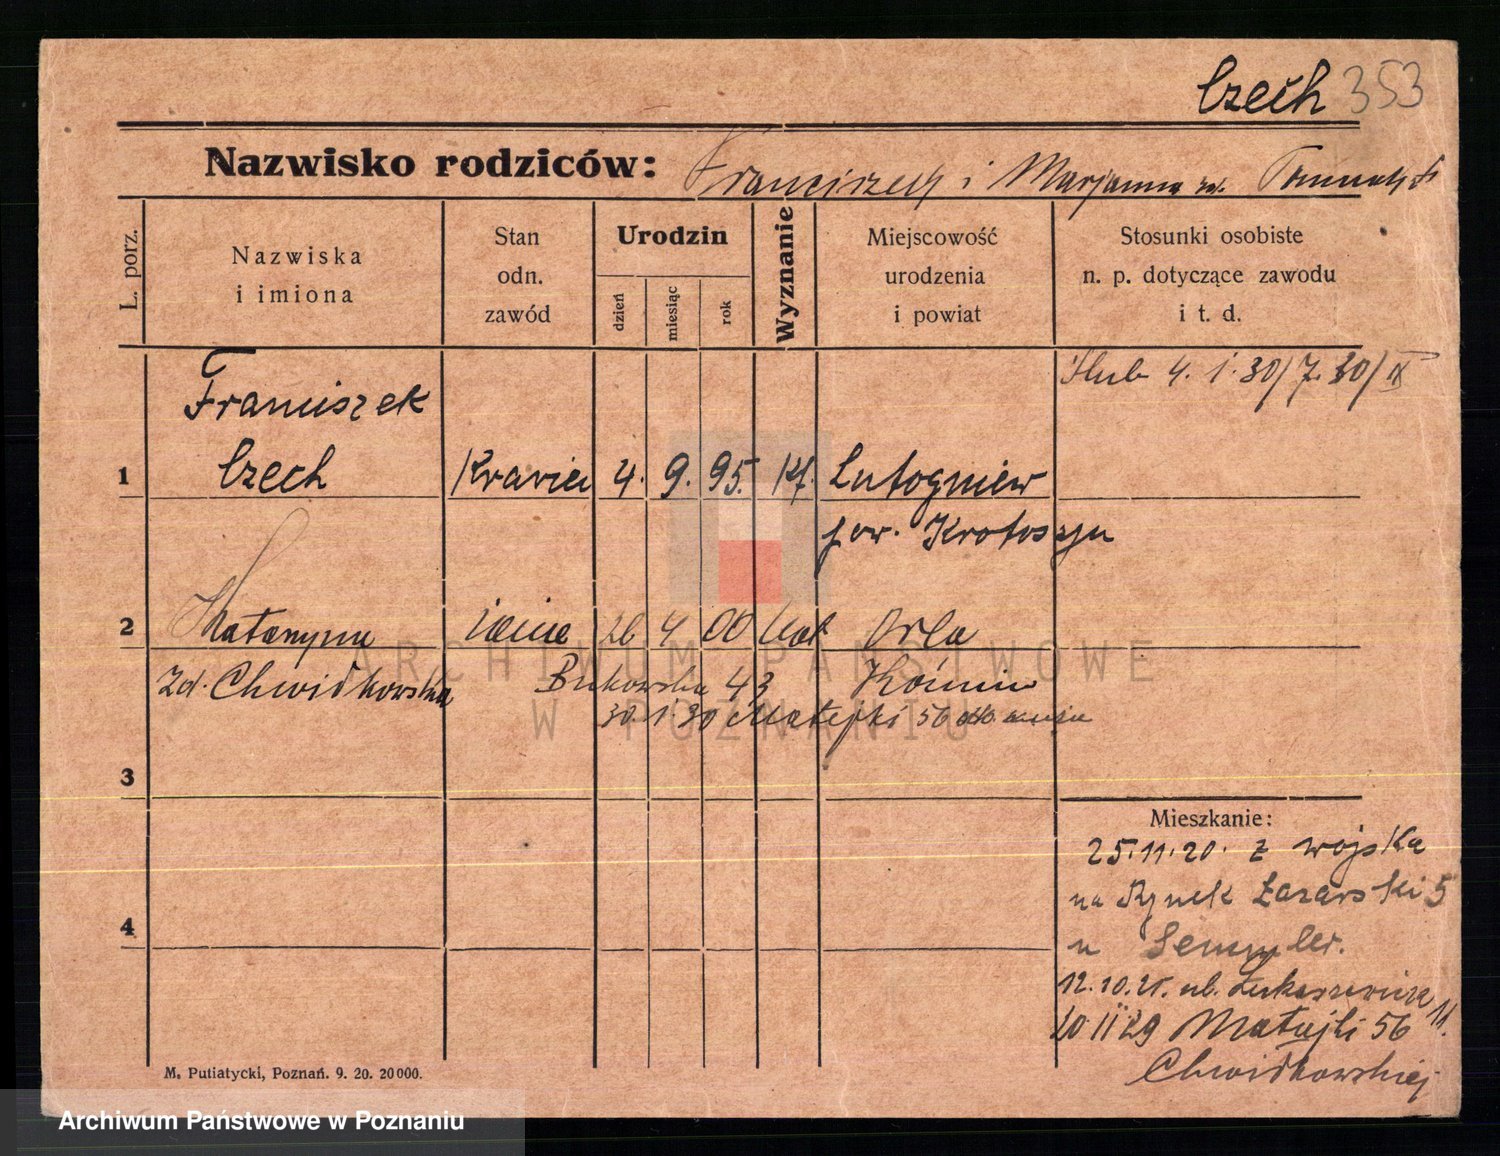 Czech 353
Nazwisko rodziców: Franciszek i Marjanna
L. porz.
Nazwiska
i imiona
Stan
odn.
zawód
Urodzin
dzień
miesiąc
rok
Wyznanie
Miejscowość
urodzenia
i powiat
Stosunki osobiste
n. p. dotyczące zawodu
i t. d.
Ślub 4. 1. 30/7. 30/IX
Franciszek
1 Czech Krawiec 4. 9. 95. Kt. Lutogniew
pow. Krotoszyn
2 Katarzyna 26 4 00 kat Orla
zd. Chwidkowska Bukowska 43 Koźmin
30 1 30 Matejki 56
ARCHIWUM PAŃSTWOWE
W POZNANIU
3
Mieszkanie:
25.11.20. z wojska
na Rynek Łazarski 5
u
4
12.10.21. ul. Łukaszewicza 11.
20 II 29 Matejki 56
Chwidkowskiej
M. Putiatycki, Poznań. 9. 20. 20 000.
Archiwum Państwowe w Poznaniu